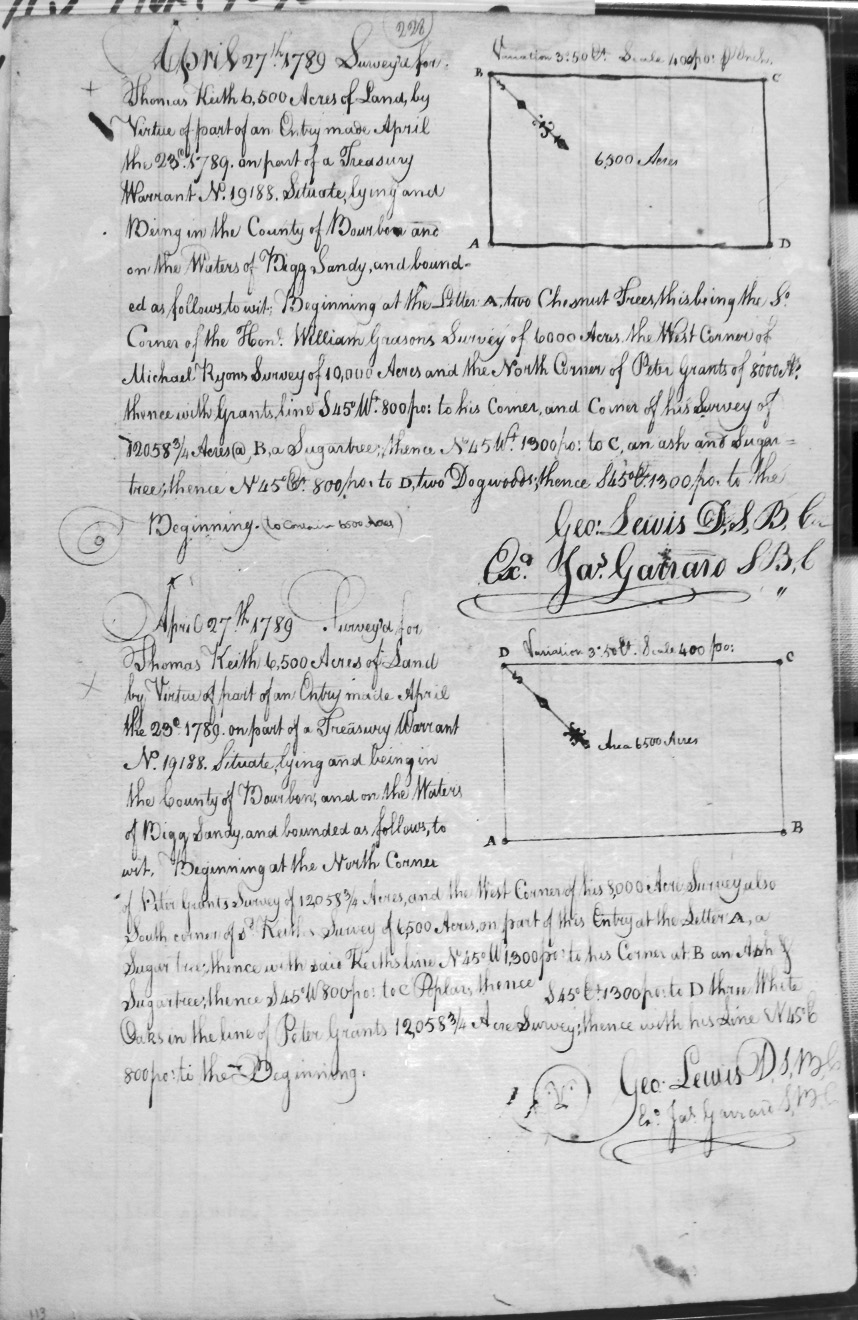 228
April 27th 1789 Survey'd for
Thomas Keith 6,500 Acres of Land, by
Virtue of part of an Entry made April
the 23d. 1789. on part of a Treasury
Warrant No. 19188. Situate, lying and
Being in the County of Bourbon and
on the Waters of Bigg Sandy, and bound-
ed as follows, to wit; Beginning at the Letter A, two Chesnut Trees, this being the So.
Corner of the Hond. William Grasons Survey of 6000 Acres, the West Corner of
Michael Ryons Survey of 10,000 Acres and the North Corner of Peter Grants of 8000 As.
thence with Grants, line S45°Wt. 800 po: to his Corner, and Corner of his Survey of
12058 3/4 Acres @ B, a Sugartree; thence No 45 Wt. 1300 po: to C, an ash and Sugar=
tree; thence N 45° Et. 800 po: to D, two Dogwoods; thence S45° Et. 1300 po. to the
Beginning. (to Contain 6500 Acres)
Geo: Lewis D,S,B,C
Exd. Jas. Garrard S B,C
Variation 3°.50 Et. Scale 400 po: p Inch.
B
C
6,500 Acres
A
D
April 27th 1789 Survey'd for
Thomas Keith 6,500 Acres of Land
by Virtue of part of an Entry made April
the 23d 1789. on part of a Treasury Warrant
No. 19188. Situate, lying and being in
the County of Bourbon, and on the Waters
of Bigg Sandy, and bounded as follows, to
wit, Beginning at the North Corner
of Peter Grants Survey of 12058 3/4 Acres, and the West Corner of his 8,000 Acre Survey also
South corner of sd. Keiths Survey of 6,500 Acres, on part of this Entry at the Letter A, a
Sugar tree; thence with said Keiths line N 45° W 1,300 po: to his Corner at B an Ash &
Sugartree; thence S 45° W 800 po: to C Poplars thence S 45° Et. 1300 po: to D three White
Oaks in the line of Peter Grants 12,058 3/4 Acre Survey; thence with his Line N 45° E
800 po: to the Beginning.
Geo: Lewis D,S,B,C
Exd. Jas. Garrard S,B,C
Variation 3°.50 Et. Scale 400 po:
D
C
Area 6500 Acres
A
B
113